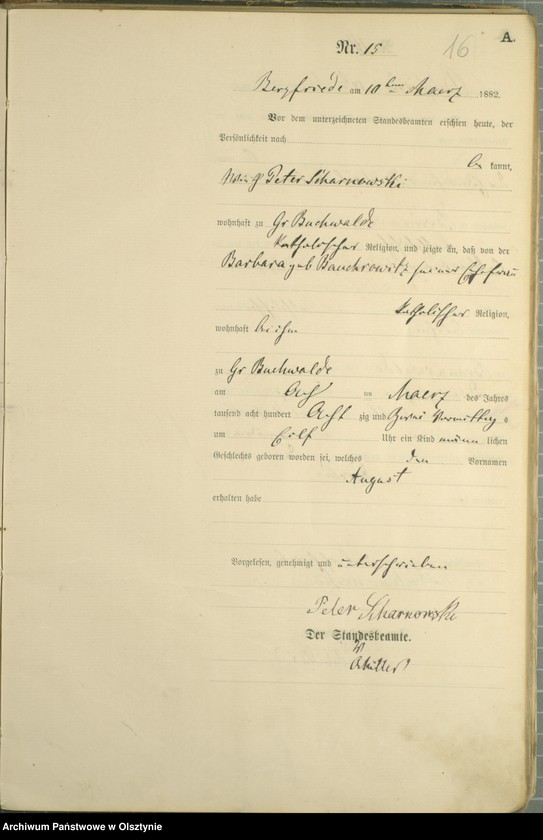 A.
16
Nr. 15
Bergfriede am 10 ten Maerz 1882.
Vor dem unterzeichneten Standesbeamten erschien heute, der
Persönlichkeit nach
be kannt,
Peter Scharnowski
wohnhaft zu Gr Buchwalde
katholischer Religion, und zeigte an, daß von der
Barbara geb seiner Ehefrau
katholischer Religion,
wohnhaft bei ihm
zu Gr Buchwalde
am Acht en Maerz des Jahres
tausend acht hundert Acht zig und Zwei Vormittag s
um Eilf Uhr ein Kind männ lichen
Geschlechts geboren worden sei, welches den Vornamen
August
erhalten habe
Vorgelesen, genehmigt und unterschrieben
Peter Scharnowski
Der Standesbeamte.
Archiwum Państwowe w Olsztynie